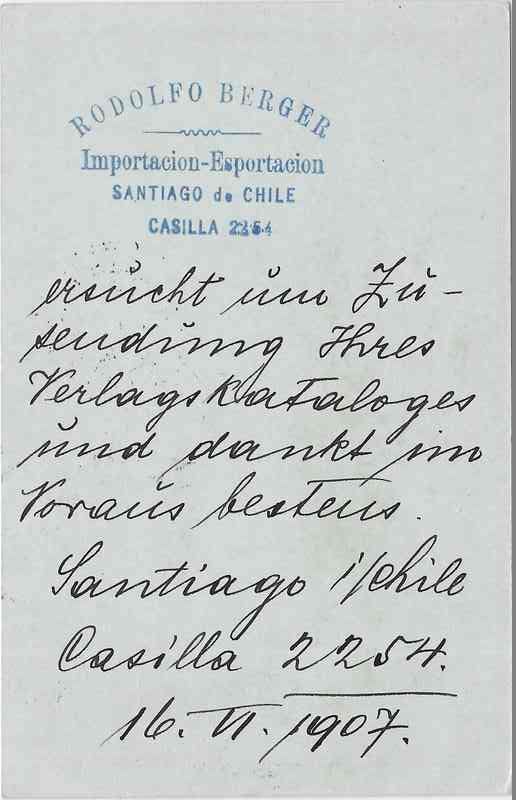 RODOLFO BERGER
Importacion-Esportacion
SANTIAGO de CHILE
CASILLA 2254
ersucht um Zu-
sendung Ihres
Verlagskataloges
und dankt im
Voraus bestens.
Santiago i/Chile
Casilla 2254.
16. VI. 1907.